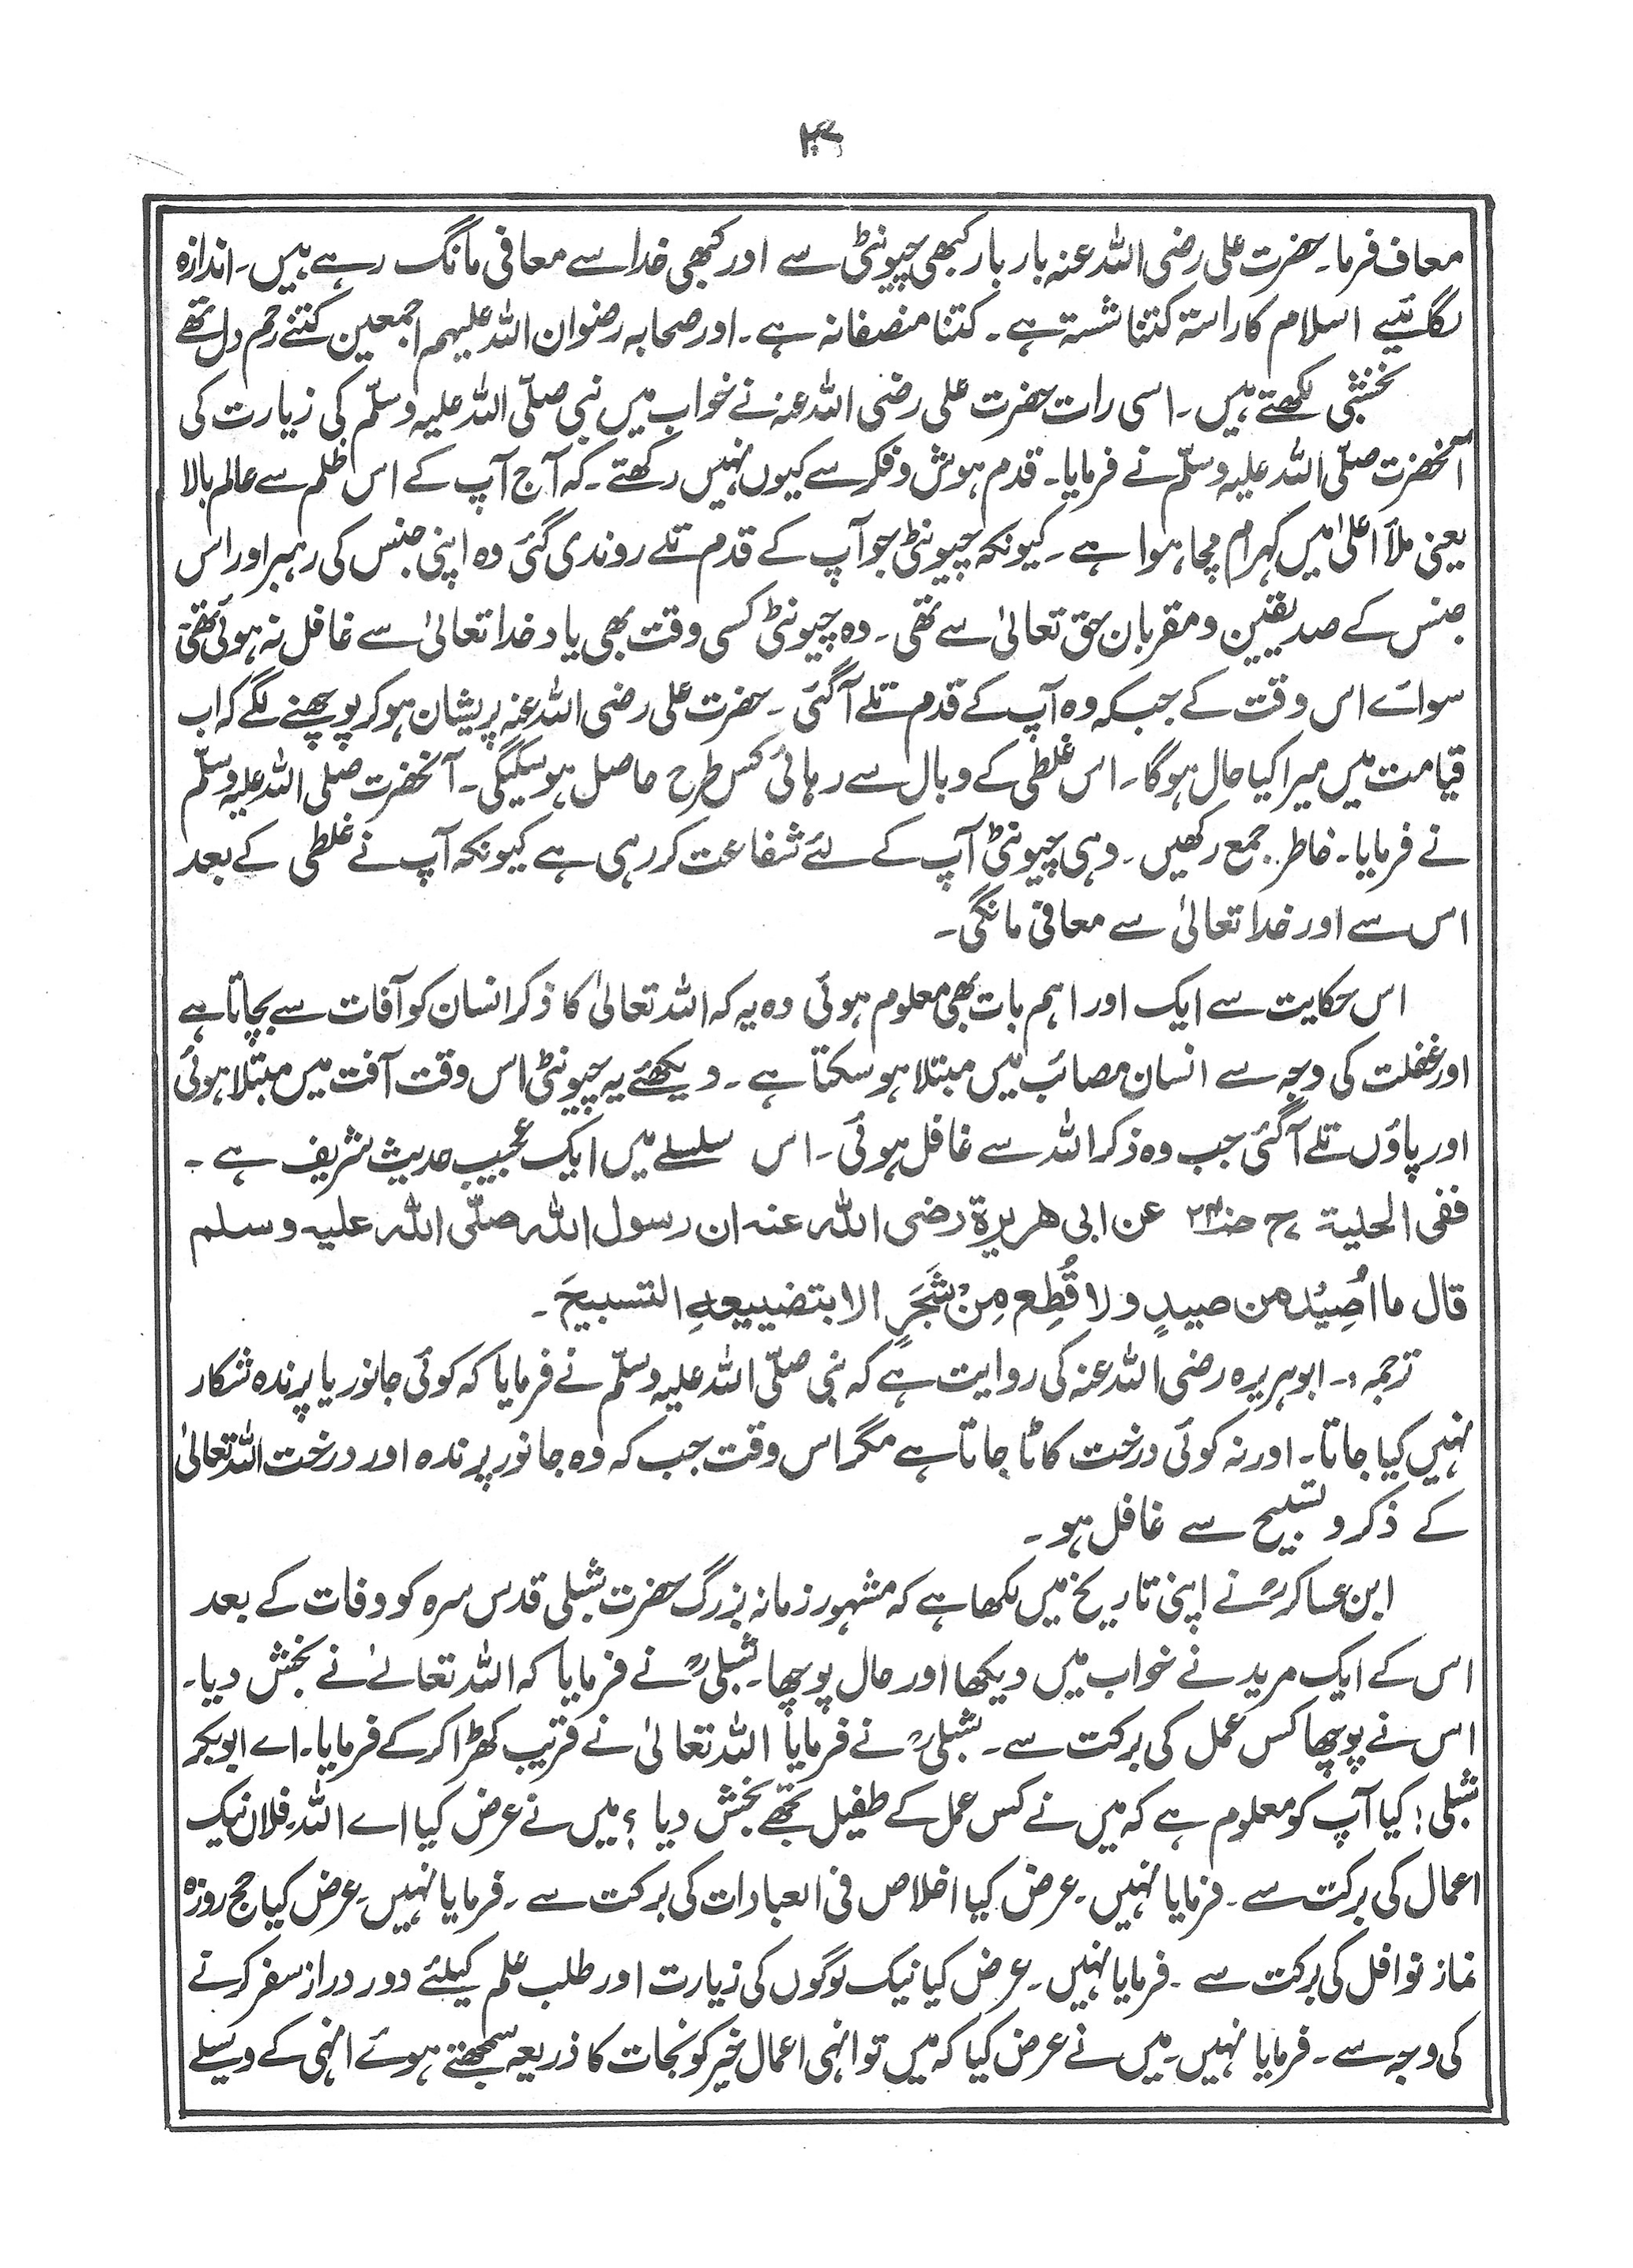 معاف فرما۔ حضرت علی رضی اللہ عنہ بار بار کبھی چیونٹی سے اور کبھی خدا سے معافی مانگ رہے ہیں۔ اندازہ
لگائیے اسلام کا راستہ کتنا شستہ ہے۔ کتنا منصفانہ ہے۔ اور صحابہ رضوان اللہ علیہم اجمعین کتنے رحم دل تھے
نخشبی لکھتے ہیں۔ اسی رات حضرت علی رضی اللہ عنہ نے خواب میں نبی صلّی اللہ علیہ وسلّم کی زیارت کی
آنحضرت صلّی اللہ علیہ وسلّم نے فرمایا۔ قدم ہوش و فکر سے کیوں نہیں رکھتے۔ کہ آج آپ کے اس ظلم سے عالم بالا
یعنی ملأ اعلیٰ میں کہرام مچا ہوا ہے۔ کیونکہ چیونٹی جو آپ کے قدم تلے روندی گئی وہ اپنی جنس کی رہبر اور اس
جنس کے صدیقین و مقربان حق تعالیٰ سے تھی۔ وہ چیونٹی کسی وقت بھی یاد خدا تعالیٰ سے غافل نہ ہوئی تھی
سوائے اس وقت کے جبکہ وہ آپ کے قدم تلے آ گئی۔ حضرت علی رضی اللہ عنہ پریشان ہو کر پوچھنے لگے کہ اب
قیامت میں میرا کیا حال ہوگا۔ اس غلطی کے وبال سے رہائی کس طرح حاصل ہو سکیگی۔ آنحضرت صلی اللہ علیہ وسلّم
نے فرمایا۔ خاطر جمع رکھیں۔ وہی چیونٹی آپ کے لئے شفاعت کر رہی ہے کیونکہ آپ نے غلطی کے بعد
اس سے اور خدا تعالیٰ سے معافی مانگی۔
اس حکایت سے ایک اور اہم بات بھی معلوم ہوئی وہ یہ کہ اللہ تعالیٰ کا ذکر انسان کو آفات سے بچاتا ہے
اور غفلت کی وجہ سے انسان مصائب میں مبتلا ہو سکتا ہے۔ دیکھئے یہ چیونٹی اس وقت آفت میں مبتلا ہوئی
اور پاؤں تلے آ گئی جب وہ ذکر اللہ سے غافل ہوئی۔ اس سلسلے میں ایک عجیب حدیث شریف ہے۔
ففی الحلیۃ عن ابی ھریرۃ رضی اللہ عنہ ان رسول اللہ صلّی اللہ علیہ وسلم
قال ما اُصِیْدَ من صیدٍ ولا قُطِع مِنْ شَجَرٍ الا بتضییعہِ التسبیحَ۔
ترجمہ:۔ ابوہریرہ رضی اللہ عنہ کی روایت ہے کہ نبی صلّی اللہ علیہ وسلّم نے فرمایا کہ کوئی جانور یا پرندہ شکار
نہیں کیا جاتا۔ اور نہ کوئی درخت کاٹا جاتا ہے مگر اس وقت جب کہ وہ جانور پرندہ اور درخت اللہ تعالیٰ
کے ذکر و تسبیح سے غافل ہو۔
ابن عساکرؒ نے اپنی تاریخ میں لکھا ہے کہ مشہور زمانہ بزرگ حضرت شبلی قدس سرہ کو وفات کے بعد
اس کے ایک مرید نے خواب میں دیکھا اور حال پوچھا۔ شبلیؒ نے فرمایا کہ اللہ تعالےٰ نے بخش دیا۔
اس نے پوچھا کس عمل کی برکت سے۔ شبلیؒ نے فرمایا اللہ تعالیٰ نے قریب کھڑا کر کے فرمایا۔ اے ابوبکر
شبلی! کیا آپ کو معلوم ہے کہ میں نے کس عمل کے طفیل تجھے بخش دیا؟ میں نے عرض کیا اے اللہ فلان نیک
اعمال کی برکت سے۔ فرمایا نہیں۔ عرض کیا اخلاص فی العبادات کی برکت سے۔ فرمایا نہیں۔ عرض کیا حج روزہ
نماز نوافل کی برکت سے۔ فرمایا نہیں۔ عرض کیا نیک لوگوں کی زیارت اور طلب علم کیلئے دور دراز سفر کرنے
کی وجہ سے۔ فرمایا نہیں۔ میں نے عرض کیا کہ میں تو انہی اعمال خیر کو نجات کا ذریعہ سمجھتے ہوئے انہی کے وسیلے